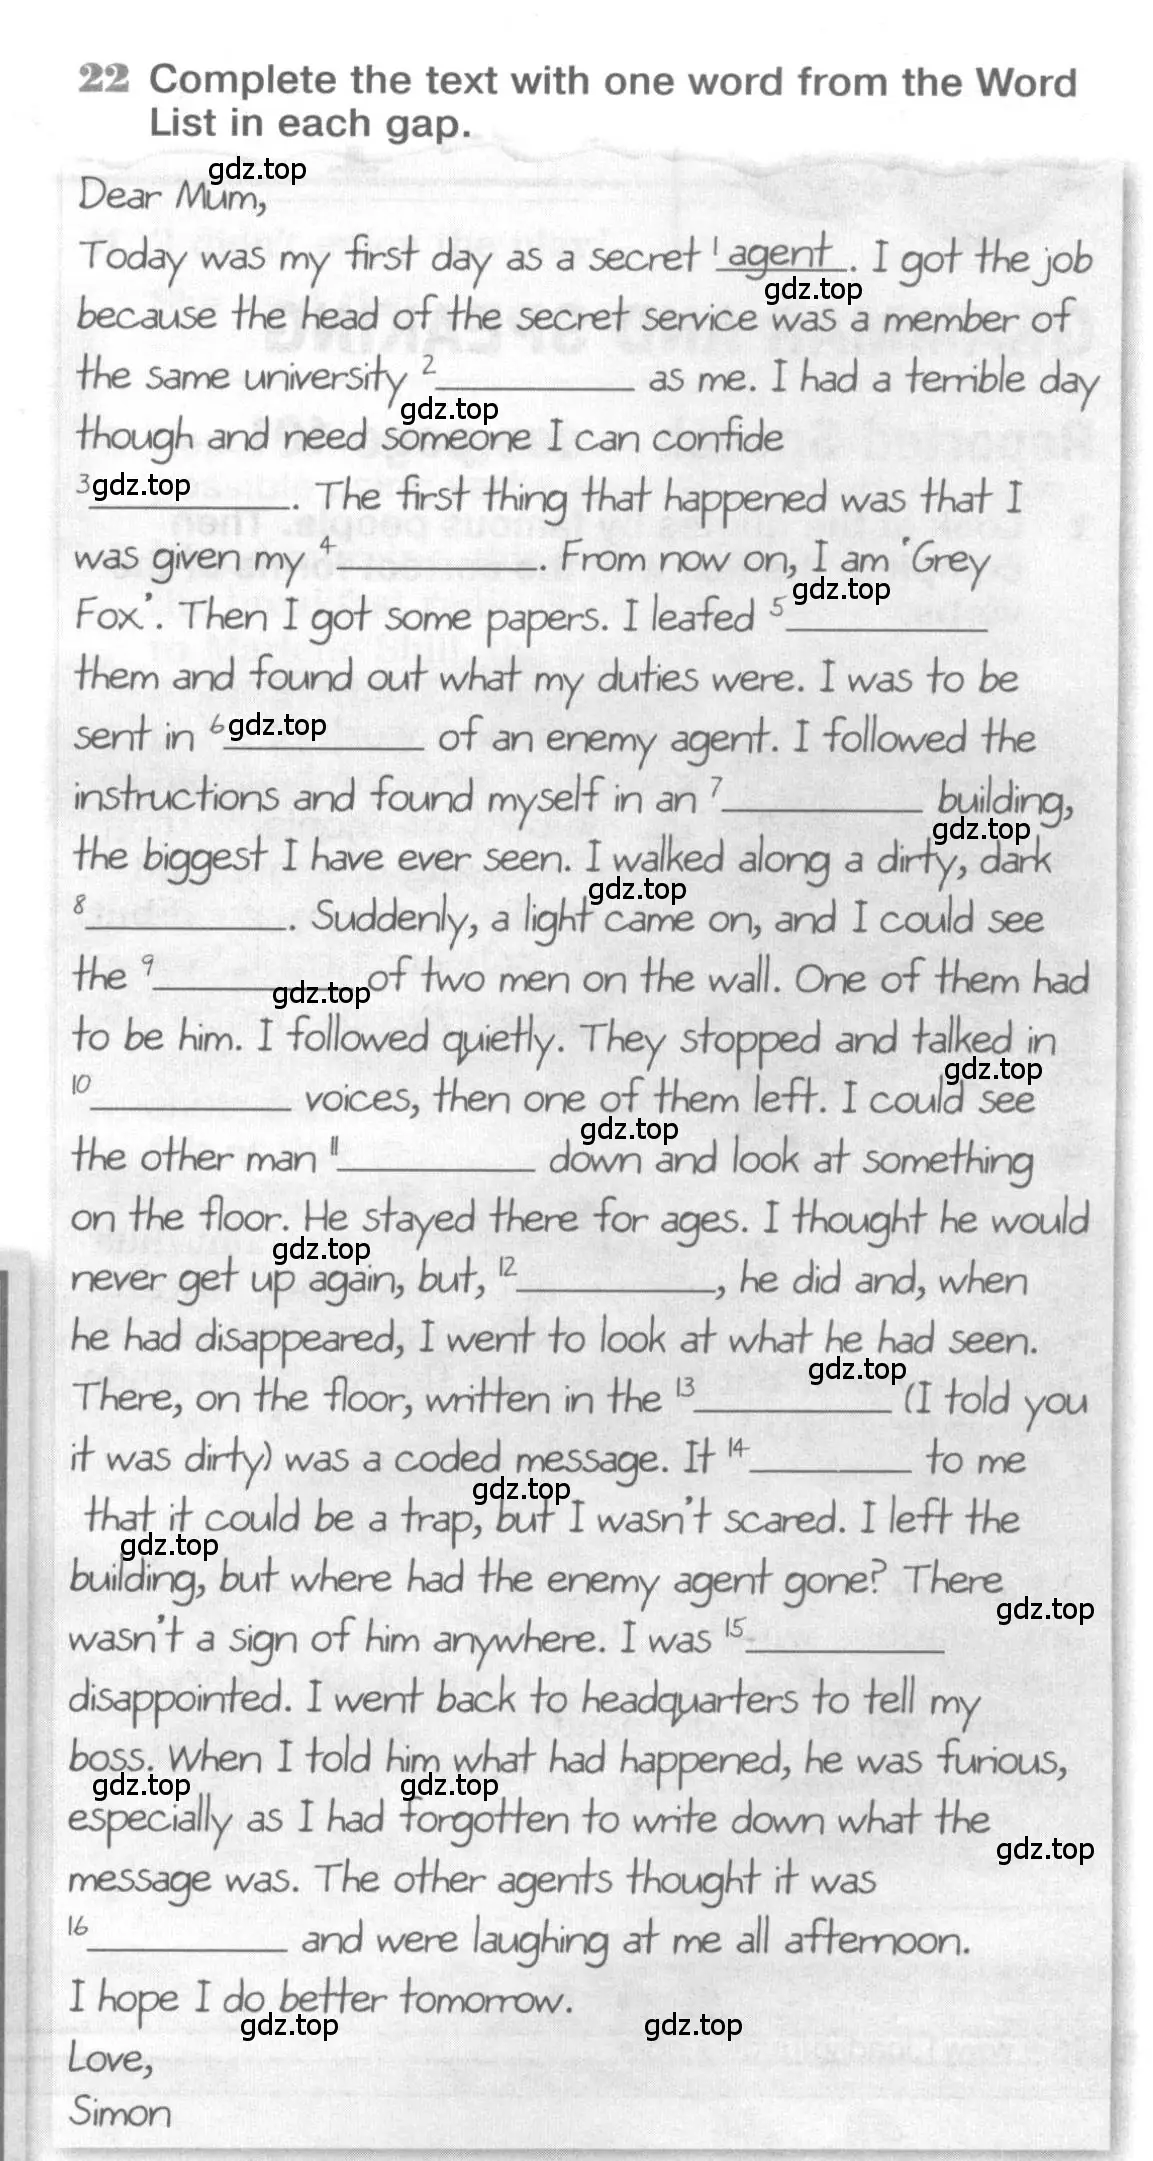 22 Complete the text with one word from the Word
List in each gap.
gdz.top
Dear Mum,
Today was my first day as a secret 1 agent. I got the job
gdz.top
because the head of the secret service was a member of
the same university 2__________ as me. I had a terrible day
gdz.top
though and need someone I can confide
3__________. The first thing that happened was that I
gdz.top
was given my 4__________. From now on, I am 'Grey
gdz.top
Fox'. Then I got some papers. I leafed 5__________
them and found out what my duties were. I was to be
sent in 6__________ of an enemy agent. I followed the
gdz.top
instructions and found myself in an 7__________ building,
gdz.top
the biggest I have ever seen. I walked along a dirty, dark
gdz.top
8__________. Suddenly, a light came on, and I could see
the 9__________ of two men on the wall. One of them had
gdz.top
to be him. I followed quietly. They stopped and talked in
gdz.top
10__________ voices, then one of them left. I could see
gdz.top
the other man 11__________ down and look at something
on the floor. He stayed there for ages. I thought he would
gdz.top
never get up again, but, 12__________, he did and, when
he had disappeared, I went to look at what he had seen.
gdz.top
There, on the floor, written in the 13__________ (I told you
it was dirty) was a coded message. It 14__________ to me
gdz.top
that it could be a trap, but I wasn't scared. I left the
gdz.top
building, but where had the enemy agent gone? There
gdz.top
wasn't a sign of him anywhere. I was 15__________
disappointed. I went back to headquarters to tell my
boss. When I told him what had happened, he was furious,
gdz.top gdz.top
especially as I had forgotten to write down what the
gdz.top
message was. The other agents thought it was
16__________ and were laughing at me all afternoon.
I hope I do better tomorrow.
gdz.top gdz.top
Love,
Simon